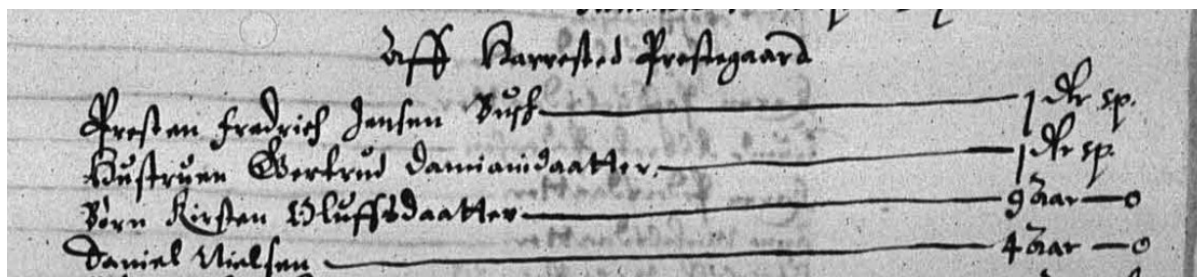 Aff Karrested Prestegaard
Presten Fredrich Jensen Bush 1 dlr sp.
Hustruen Gertrud Damianidaatter. 1 dlr sp.
Børn Kirsten Oluffsdaatter 9 aar — 0
Daniel Nielsen 4 aar — 0